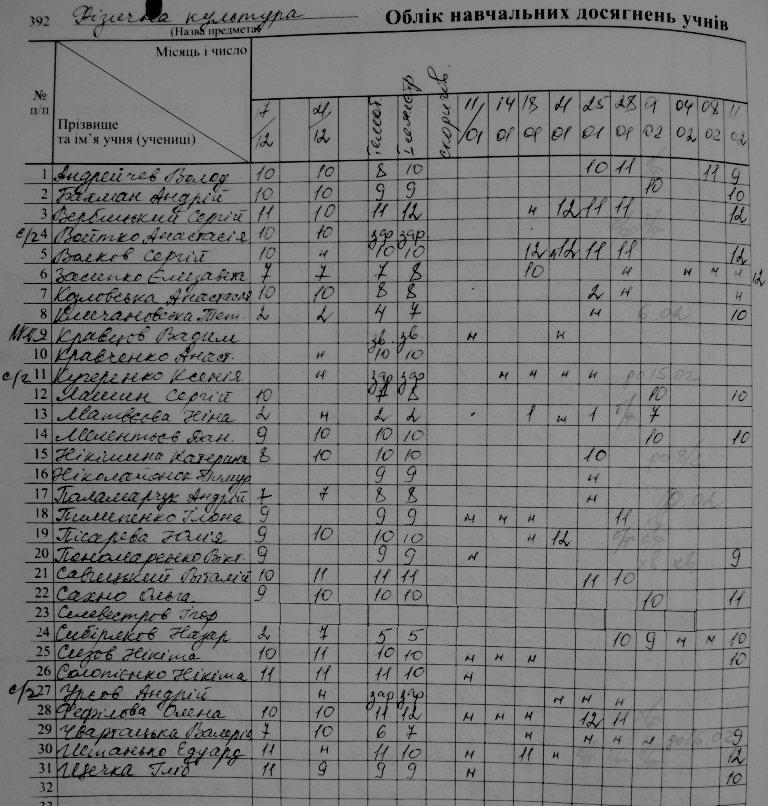 392 Фізична культура Облік навчальних досягнень учнів
(Назва предмета)
Місяць і число
№ п/п
Прізвище та ім'я учня (учениці)
7/12 21/12 Темат. І семестр. скоригов. 11/01 14/01 18/01 21/01 25/01 28/01 01/02 04/02 08/02 11/02
1 Андрейчев Волод. 10 10 8 10 10 11 11 9
2 Бахман Андрій 10 10 9 9 10 10
3 Вербицький Сергій 11 10 11 12 н 12 11 11 12
с/г 4 Войтко Анастасія 10 10 зар зар.
5 Волков Сергій 10 н 10 10 12 12 11 11 12
6 Засипко Єлизавета 7 7 7 8 10 н н н н 12
7 Козловська Анастасія 10 10 8 8 2 н н
8 2 2 4 7 н 6.02 10
9 Кравцов Вадим зв. зв. н н
10 Кравченко Анаст. н 10 10
с/г 11 Кучеренко Ксенія н зар зар н н н н до 15.02
12 Лашин Сергій 10 7 8 10 10
13 Матвєєва Ніна 2 н 2 2 1 н 1 7
14 Мелентьєв Дан. 9 10 10 10 10 10
15 Нікішина Катерина 8 10 10 10 10
16 9 9 н
17 Паламарчук Андрій 7 7 8 8 н 10.02
18 Пилипенко Ілона 9 9 9 н н н 11 хв
19 Пісарєва Юлія 9 10 10 10 н 12
20 Пономаренко Вікт. 9 9 9 н хв хв 9
21 Савицький Віталій 10 11 11 11 11 10
22 Сахно Ольга 9 10 10 10 10 11
23 Селевестров Ігор
24 Сибіряков Назар 2 7 5 5 10 9 н н 10
25 Сизов Нікіта 10 11 10 10 н н н 10
26 Солопієнко Нікіта 11 11 11 10 н
с/г 27 Урсов Андрій н зар зар н н н
28 Фефілова Олена 10 10 11 12 н н н 12 11
29 Чвартацька Валерія 7 10 6 7 н н н н 9
30 Шманько Едуард 11 н 11 10 н 11 н 12
31 Щечка Гліб 11 9 9 9 н 10
32